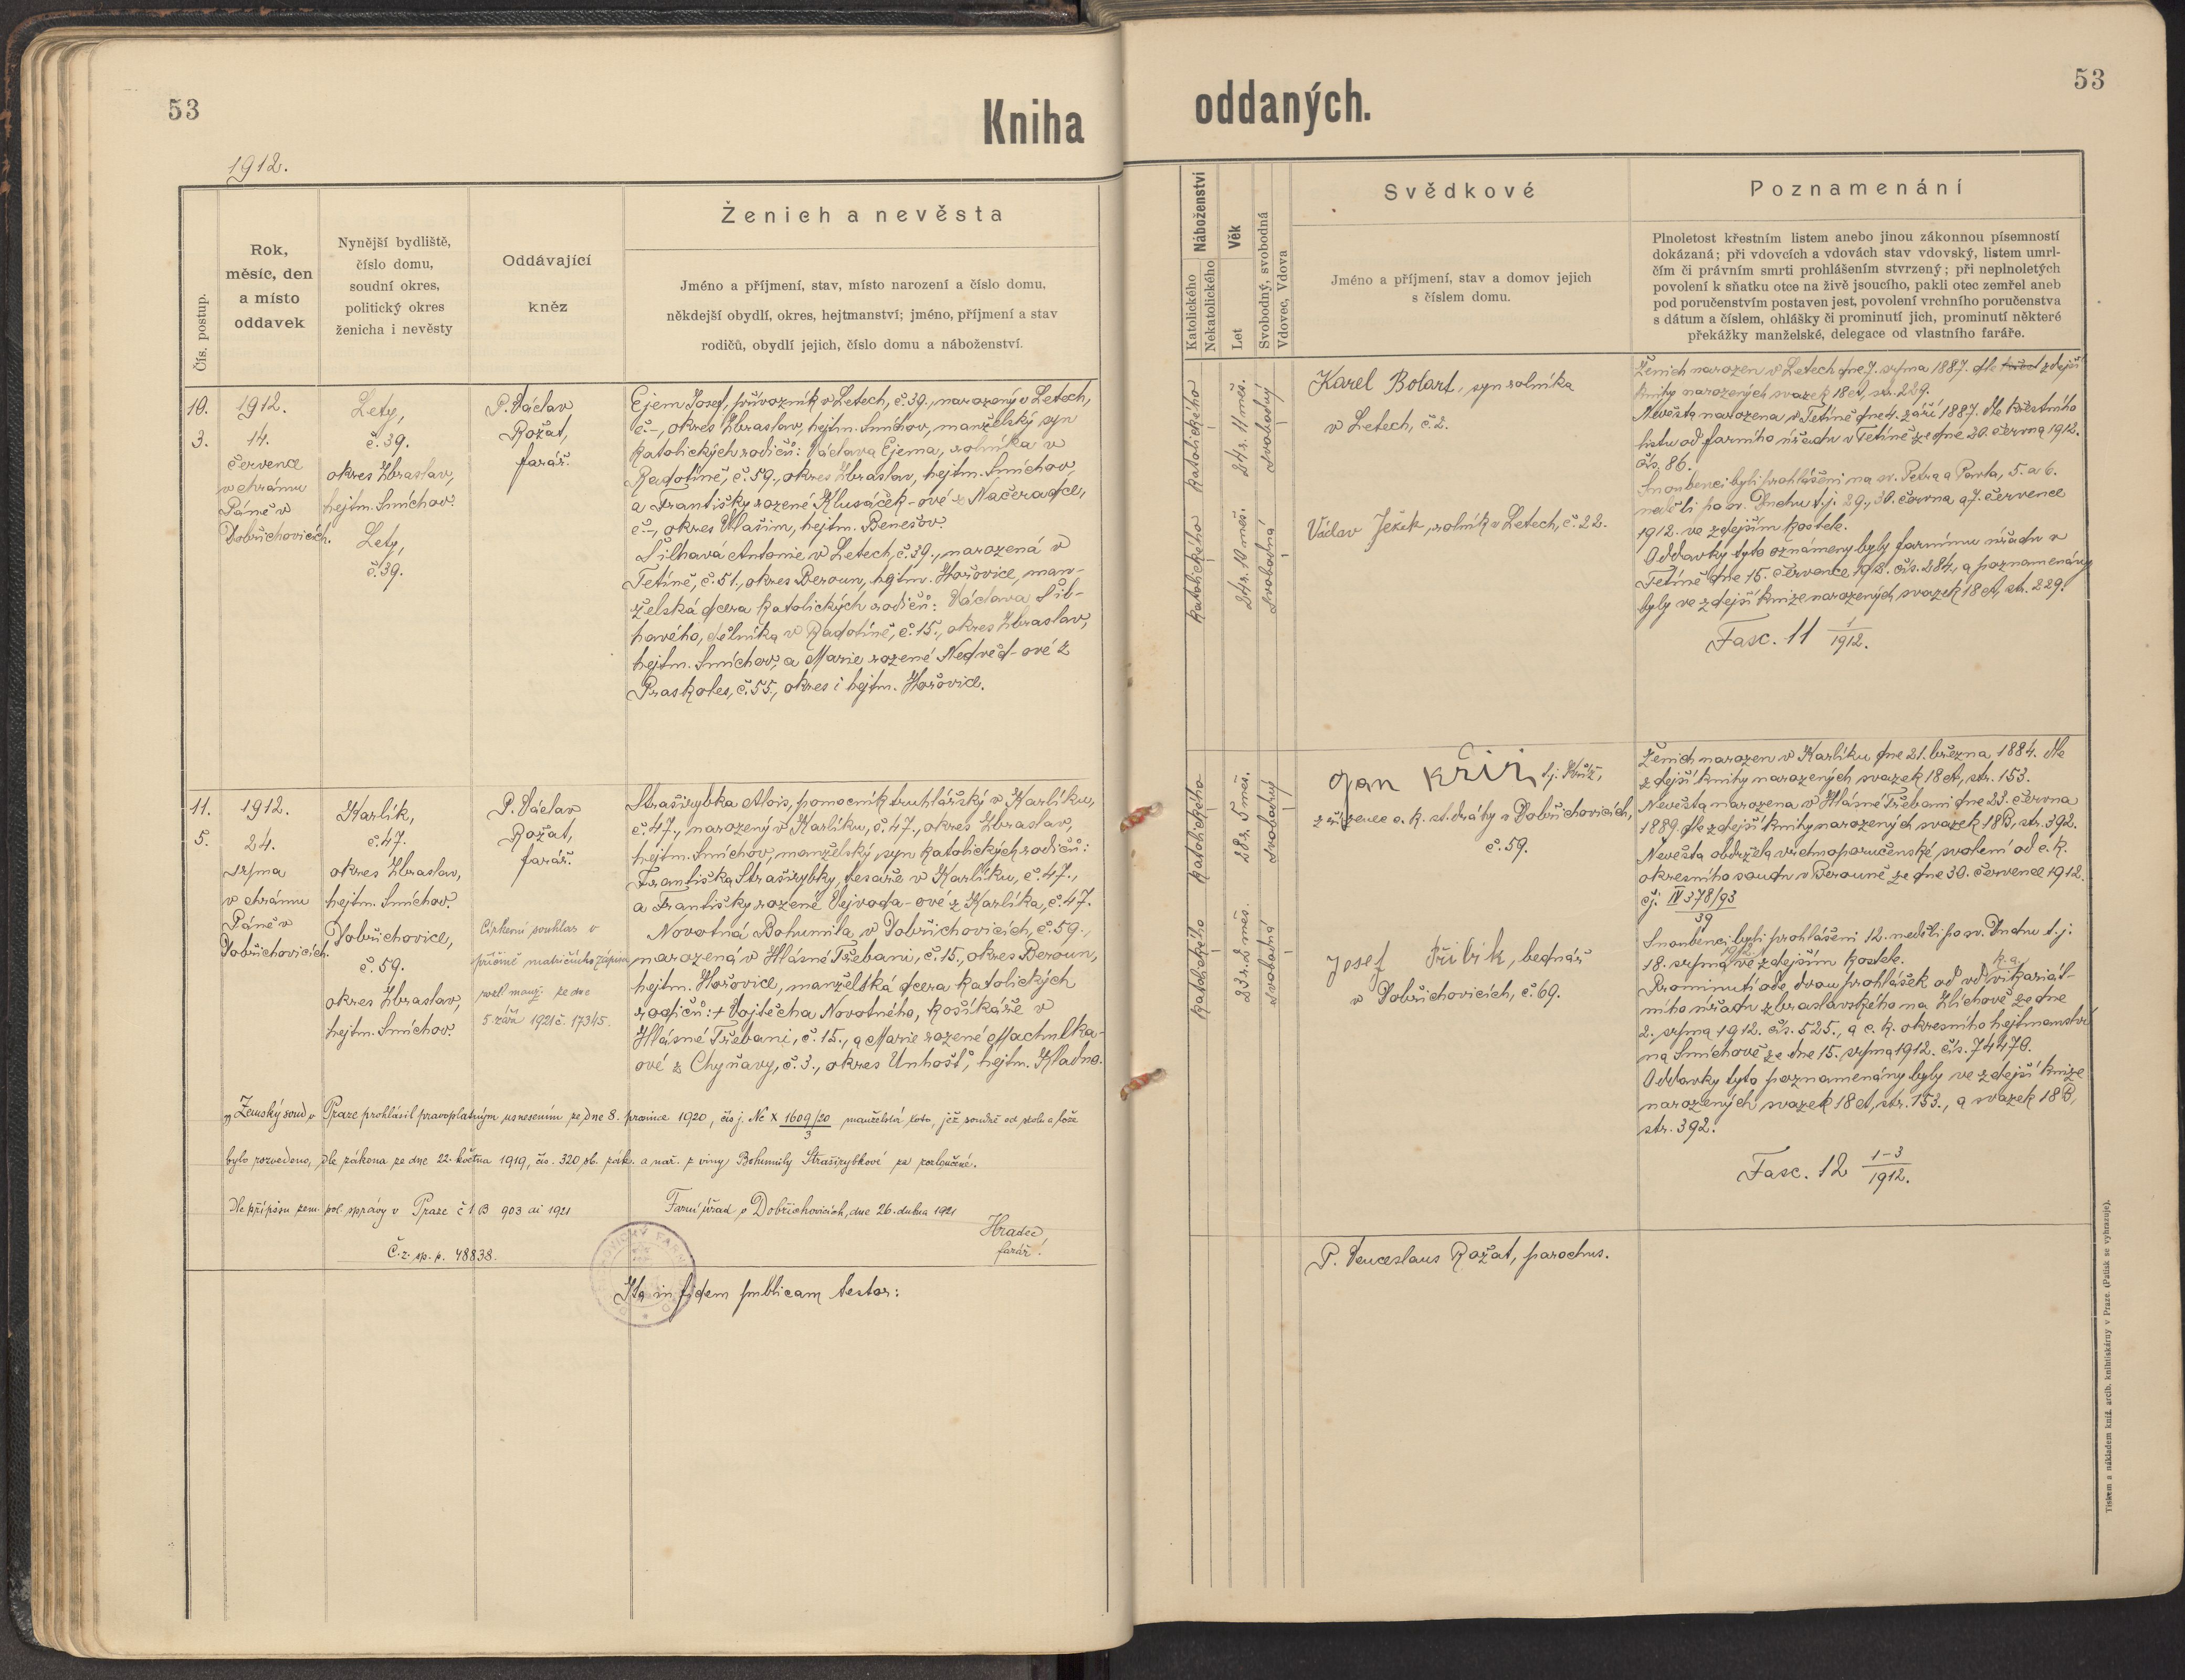 53
Kniha
1912.
Čís. postup.
Rok,
měsíc, den
a místo
oddavek
Nynější bydliště,
číslo domu,
soudní okres,
politický okres
ženicha i nevěsty
Oddávající
kněz
Ženich a nevěsta
Jméno a příjmení, stav, místo narození a číslo domu,
někdejší obydlí, okres, hejtmanství; jméno, příjmení a stav
rodičů, obydlí jejich, číslo domu a náboženství.
10.
3.
1912.
14.
července
v chrámu
Páně v
Dobřichovicích.
Lety,
č. 39.
okres Zbraslav,
hejtm. Smíchov.
Lety,
č. 39.
P. Václav
Rožat,
farář.
Ejem Josef, převozník v Letech, č. 39., narozený v Letech,
č.-, okres Zbraslav, hejtm. Smíchov, manželský syn
katolických rodičů: Václava Ejema, rolníka v
Radotíně, č. 59., okres Zbraslav, hejtm. Smíchov,
a Františky rozené Klusáček-ové z Načeradce,
č.-, okres Vlašim, hejtm. Benešov.
Šilhavá Antonie v Letech, č. 39., narozená v
Tetíně, č. 51., okres Beroun, hejtm. Hořovice, man-
želská dcera katolických rodičů: Václava Šil-
havého, dělníka v Radotíně, č. 15., okres Zbraslav,
hejtm. Smíchov, a Marie rozené Nedvěd-ové z
Praskoles, č. 55., okres i hejtm. Hořovice.
11.
5.
1912.
24.
srpna
v chrámu
Páně v
Dobřichovicích.
Karlík,
č. 47.
okres Zbraslav,
hejtm. Smíchov.
Dobřichovice,
č. 59.
okres Zbraslav,
hejtm. Smíchov.
P. Václav
Rožat,
farář.
Církevní souhlas v
příčině matričního zápisu
rozl. manž. ze dne
5. září 1921 č. 17345.
Straširybka Alois, pomocník truhlářský v Karlíku,
č. 47., narozený v Karlíku, č. 47., okres Zbraslav,
hejtm. Smíchov, manželský syn katolických rodičů:
Františka Straširybky, tesaře v Karlíku, č. 47.,
a Františky rozené Vejvoda-ové z Karlíka, č. 47.
Novotná Bohumila v Dobřichovicích, č. 59.,
narozená v Hlásné Třebani, č. 15., okres Beroun,
hejtm. Hořovice, manželská dcera katolických
rodičů: + Vojtěcha Novotného, košíkáře v
Hlásné Třebani, č. 15., a Marie rozené Machulka-
ové z Chyňavy, č. 3., okres Unhošť, hejtm. Kladno.
„Zemský soud v Praze prohlásil pravoplatným usnesením ze dne 8. prosince 1920, čís. j. Nc X 1609/20 manželství toto, jež soudně od stolu a lože
3
bylo rozvedeno, dle zákona ze dne 22. května 1919, čís. 320 sb. zák. a nař. z viny Bohumily Straširybkové za rozloučené.
Dle přípisu zem. pol. správy v Praze č 1 B 903 ai 1921
Č. z. sp. p. 48838.
Farní úřad v Dobřichovicích, dne 26. dubna 1921
Hradec,
farář.
Ita in fidem publicam testor:
53
oddaných.
Náboženství
Katolického
Nekatolického
Věk
Let
Svobodný, svobodná
Vdovec, Vdova
Svědkové
Jméno a příjmení, stav a domov jejich
s číslem domu.
Poznamenání
Plnoletost křestním listem anebo jinou zákonnou písemností
dokázaná; při vdovcích a vdovách stav vdovský, listem umrl-
čím či právním smrti prohlášením stvrzený; při neplnoletých
povolení k sňatku otce na živě jsoucího, pakli otec zemřel aneb
pod poručenstvím postaven jest, povolení vrchního poručenstva
s dátum a číslem, ohlášky či prominutí jich, prominutí některé
překážky manželské, delegace od vlastního faráře.
katolického
24 r. 11 měs.
svobodný
katolického
24 r. 10 měs.
svobodná
Karel Bolart, syn rolníka
v Letech, č. 2.
Václav Ježek, rolník v Letech, č. 22.
Ženich narozen v Letech dne 7. srpna 1887. dle zdejší
knihy narozených svazek 18 A, str. 229.
Nevěsta narozena v Tetíně dne 4. září 1887. dle křestního
listu od farního úřadu v Tetíně ze dne 20. června 1912.
čís. 86.
Snoubenci byli prohlášeni na sv. Petra a Pavla, 5. a 6.
neděli po sv. Duchu t. j. 29., 30. června a 7. července
1912. ve zdejším kostele.
Oddavky tyto oznámeny byly farnímu úřadu v
Tetíně dne 15. července 1912. čís. 284., a poznamenány
byly ve zdejší knize narozených svazek 18 A, str. 229.
Fasc. 11 1/1912.
katolického
28 r. 5 měs.
svobodný
katolického
23 r. 2 měs.
svobodná
Jan Kříž, t. j. Kříž,
zřízenec c. k. st. dráhy v Dobřichovicích,
č. 59.
Josef Přibík, bednář
v Dobřichovicích, č. 69.
Ženich narozen v Karlíku dne 21. března 1884. dle
zdejší knihy narozených svazek 18 A, str. 153.
Nevěsta narozena v Hlásné Třebani dne 23. června
1889. dle zdejší knihy narozených svazek 18 B, str. 392.
Nevěsta obdržela vrchnoporučenské svolení od c. k.
okresního soudu v Berouně ze dne 30. července 1912.
čj. IV 378/93
39
Snoubenci byli prohlášeni 12. neděli po sv. Duchu t. j:
18. srpna 1912. ve zdejším kostele.
Prominutí ode dvou prohlášek od vdp. k. a. vikariát-
ního úřadu zbraslavského na Zlíchově ze dne
2. srpna 1912. čís. 525., a c. k. okresního hejtmanství
na Smíchově ze dne 15. srpna 1912. čís. 74470.
Oddavky tyto poznamenány byly ve zdejší knize
narozených svazek 18 A, str. 153., a svazek 18 B,
str. 392.
Fasc. 12 1-3/1912.
P. Venceslaus Rožat, parochus.
Tiskem a nákladem kníž. arcib. knihtiskárny v Praze. (Patisk se vyhrazuje).